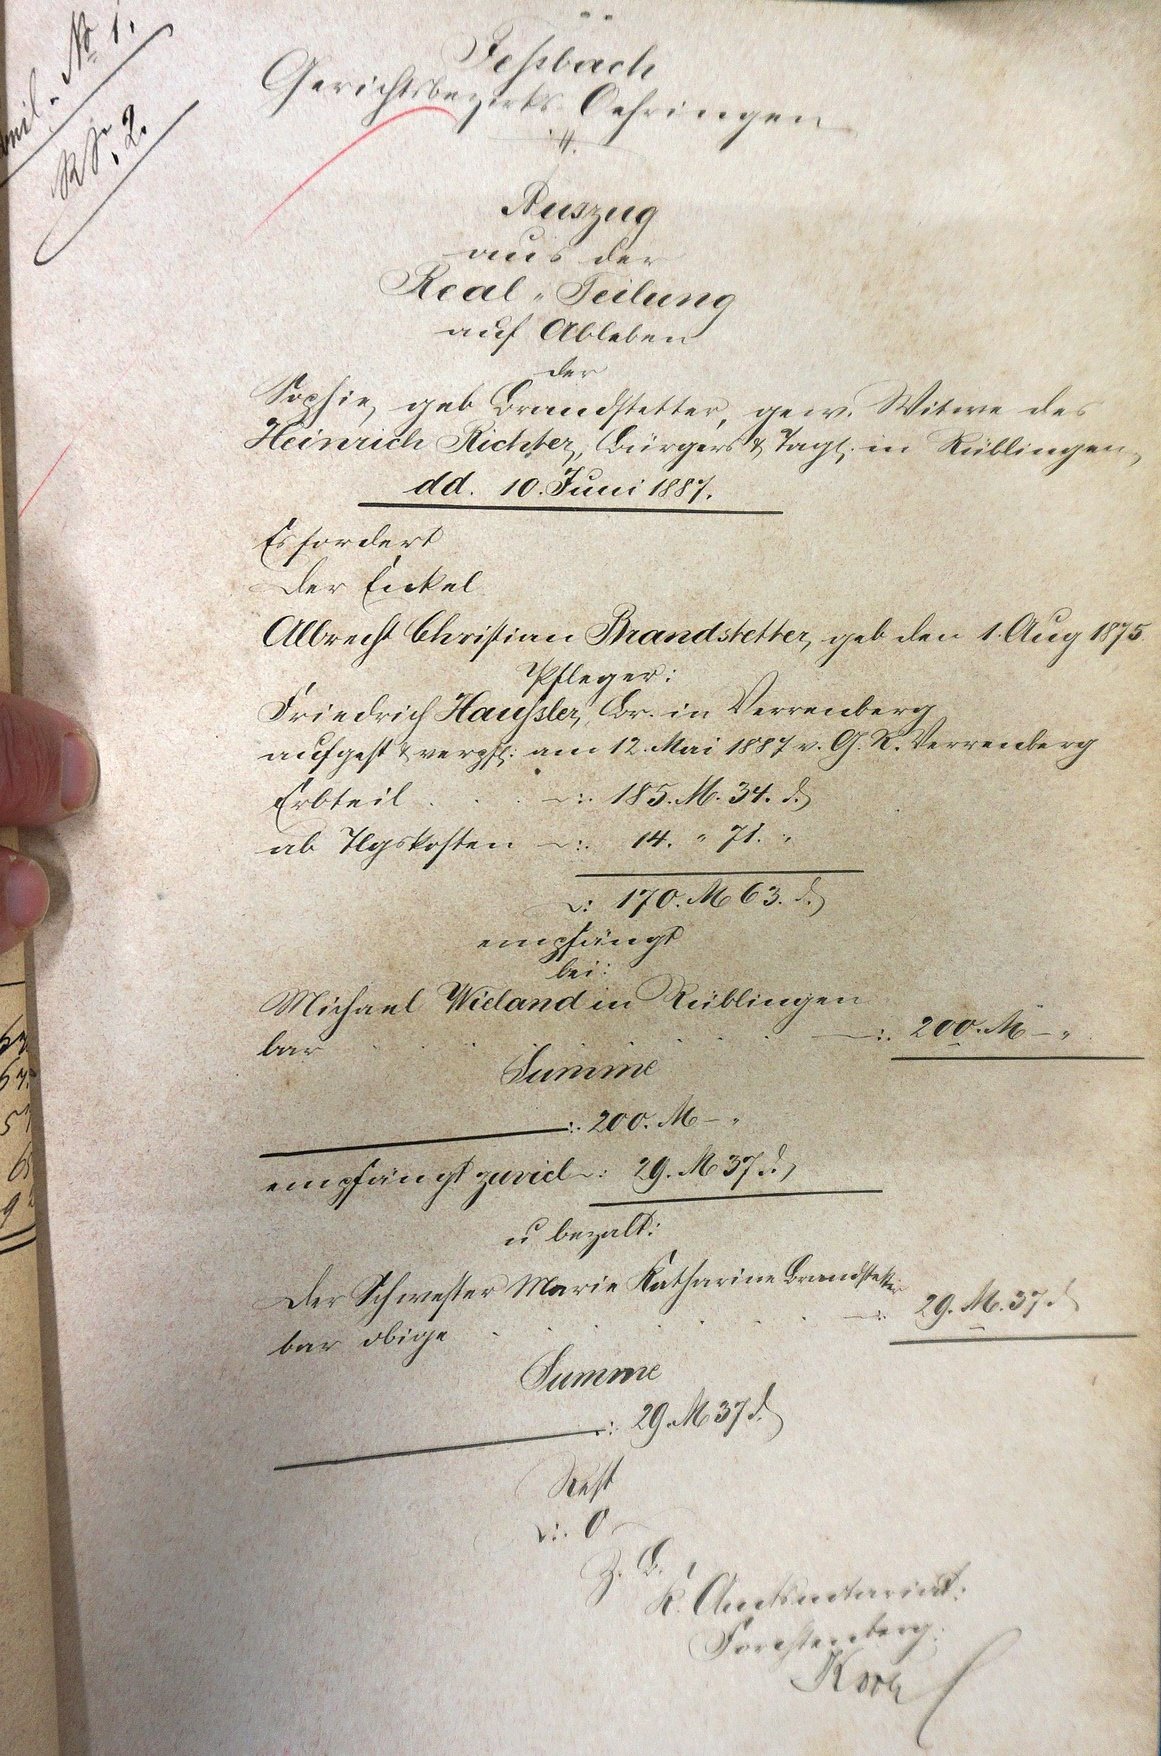 Beil. No 1.
RS. 2.
Feßbach
Gerichtsbezirks Oehringen
Auszug
aus der
Real-Teilung
auf Ableben
der
Sophie, geb Brandstetter, gew. Witwe des
Heinrich Richter, Bürgers & Tagl. in Küblingen,
dd. 10. Juni 1887.
Es fordert
Der Enkel
Albrecht Christian Brandstetter, geb den 1. Aug 1875
Pfleger:
Friedrich Haußler, Br. in Verrenberg
aufgest & verpfl. am 12. Mai 1887 v. G. R. Verrenberg
Erbteil . . . -:. 185. M. 34. d.
ab Tlgskosten -:. 14. " 71. "
-: 170. M 63. d.
empfängt
bei:
Michael Wieland in Küblingen
bar -:. 200. M - "
Summe
-:. 200. M - "
empfängt zuviel -: 29. M 37 d.,
u bezalt:
Der Schwester Marie Katharine Brandstetter
bar obige -:. 29. M. 37 d
Summe
-: 29. M 37 d.
Rest
-:. 0
Z. B.
K. Amtsnotariat:
Forchtenberg.